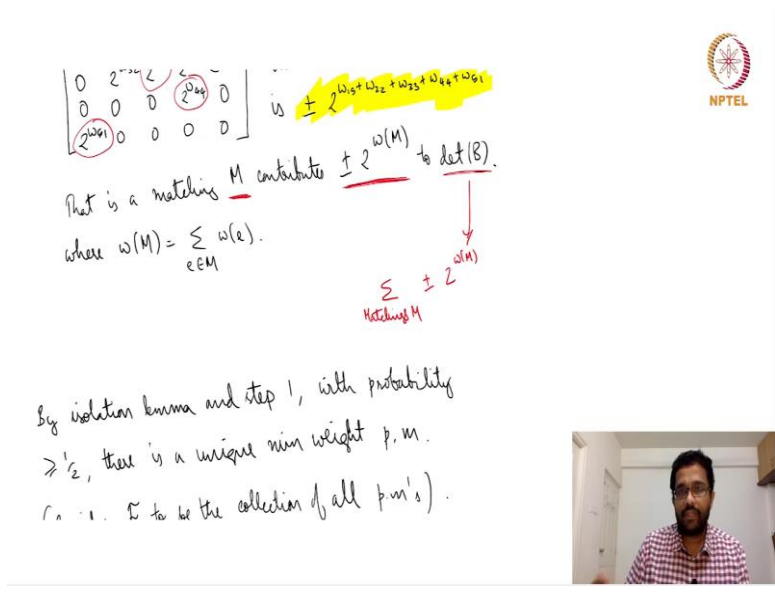 NPTEL
0 2 2
0 0 0 2^{w_{44}} 0
2^{w_{51}} 0 0 0 0
is ± 2^{w_{15} + w_{22} + w_{33} + w_{44} + w_{51}}
That is a matching M contributes ± 2^{w(M)} to det(B).
where w(M) = Σ_{e∈M} w(e).
Σ_{Matchings M} ± 2^{w(M)}
By isolation lemma and step 1, with probability
≥ 1/2, there is a unique min weight p.m.
to be the collection of all p.m's).